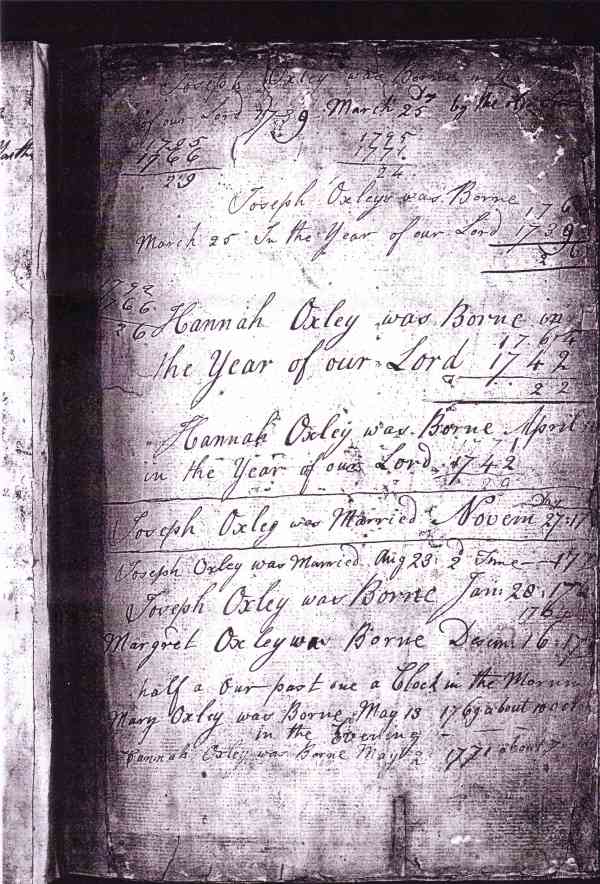 Joseph Oxley was Borne in the
of our Lord 1739 March 25 by the
1795 1795
1766 1771
29 24
Joseph Oxleys was Borne
March 25 In the Year of our Lord 1739
1792
1766
26
Hannah Oxley was Borne in
1764
the Year of our Lord 1742
22
Hannah Oxley was Borne April
in the Year of our Lord 1742
Joseph Oxley was Married Novem 27
Joseph Oxley was Married Aug 23 2d Time
Joseph Oxley was Borne Jan 28
Margret Oxley was Borne Decem 16
half a Our past one a Clock in the Morn
Mary Oxley was Borne May 13 1769 about 10
in the Evening
Hannah Oxley was Borne May 2 1771 about 7